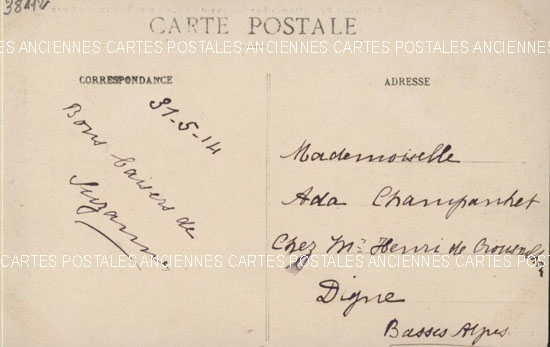 38112
CARTE POSTALE
ANCIENNES CARTES POSTALES ANCIENNES CARTES POSTALES ANCIENNES
CORRESPONDANCE
31-5-14
Bons baisers de
Suzanne
ADRESSE
Mademoiselle
Ada Champanhet
Chez Mr Henri de
CARTES POSTALES ANCIENNES CARTES POSTALES ANCIENNES CARTES POSTALES
Digne
Basses Alpes